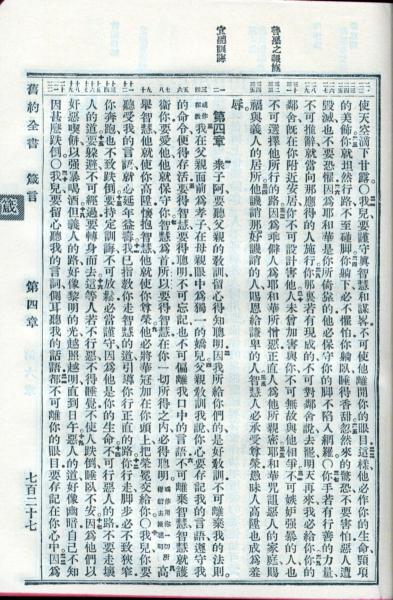 宜遵訓誨
使天空滴下甘露○我兒要謹守眞智慧和謀畧不可使他離開你的眼目這樣他必作你的生命頸項
的美飾你就坦然行路不至碰脚你躺下必不懼怕你躺臥睡得香甜忽然來的驚恐不要害怕惡人遭
毀滅也不要恐懼因爲耶和華是你所倚靠的他必保守你的脚不陷入網羅○你手若有行善的力量
不可推辭就當向那應得的人施行你那裏若有現成的不可對鄰舍說去罷明天再來我必給你你的
鄰舍旣在你附近安居你不可設計害他人未曾加害與你不可無故與他相爭不可嫉妒强暴的人也
不可選擇他所行的路因爲乖僻人爲耶和華所憎惡正直人爲他所親密耶和華咒詛惡人的家庭賜
福與義人的居所他譏誚那好譏誚的人賜恩給謙卑的人智慧人必承受尊榮愚昧人高陞也成爲羞
辱
第四章 衆子阿要聽父親的敎訓留心得知聰明因我所給你們的是好敎訓不可離棄我的法則
我在父親面前爲孝子在母親眼中爲獨一的嬌兒父親敎訓我說你心要存記我的言語遵守我
的命令便得存活要得智慧要得聰明不可忘記也不可偏離我口中的言語不可離棄智慧智慧就護
衛你要愛他他就保守你智慧爲首所以要得智慧在你一切所得之內必得聰明 高
舉智慧他就使你高陞懷抱智慧他就使你尊榮他必將華冠加在你頭上把榮冕交給你○我兒你要
聽受我的言語就必延年益壽我已指敎你走智慧的道引導你行正直的路你行走脚步必不致狹窄
你奔跑也不致跌倒要持定訓誨不可放鬆必當謹守因爲他是你的生命不可行惡人的路不要走壞
人的道要躱避不可經過要轉身而去這等人若不行惡不得睡覺不使人跌倒睡臥不安因爲他們以
奸惡喫餅以强暴喝酒但義人的路好像黎明的光越照越明直到日午惡人的道好像幽暗自己不知
因甚麽跌倒○我兒要留心聽我的言詞側耳聽我的話語都不可離你的眼目要存記在你心中因爲
舊約全書 箴言 第四章 七百二十七
箴